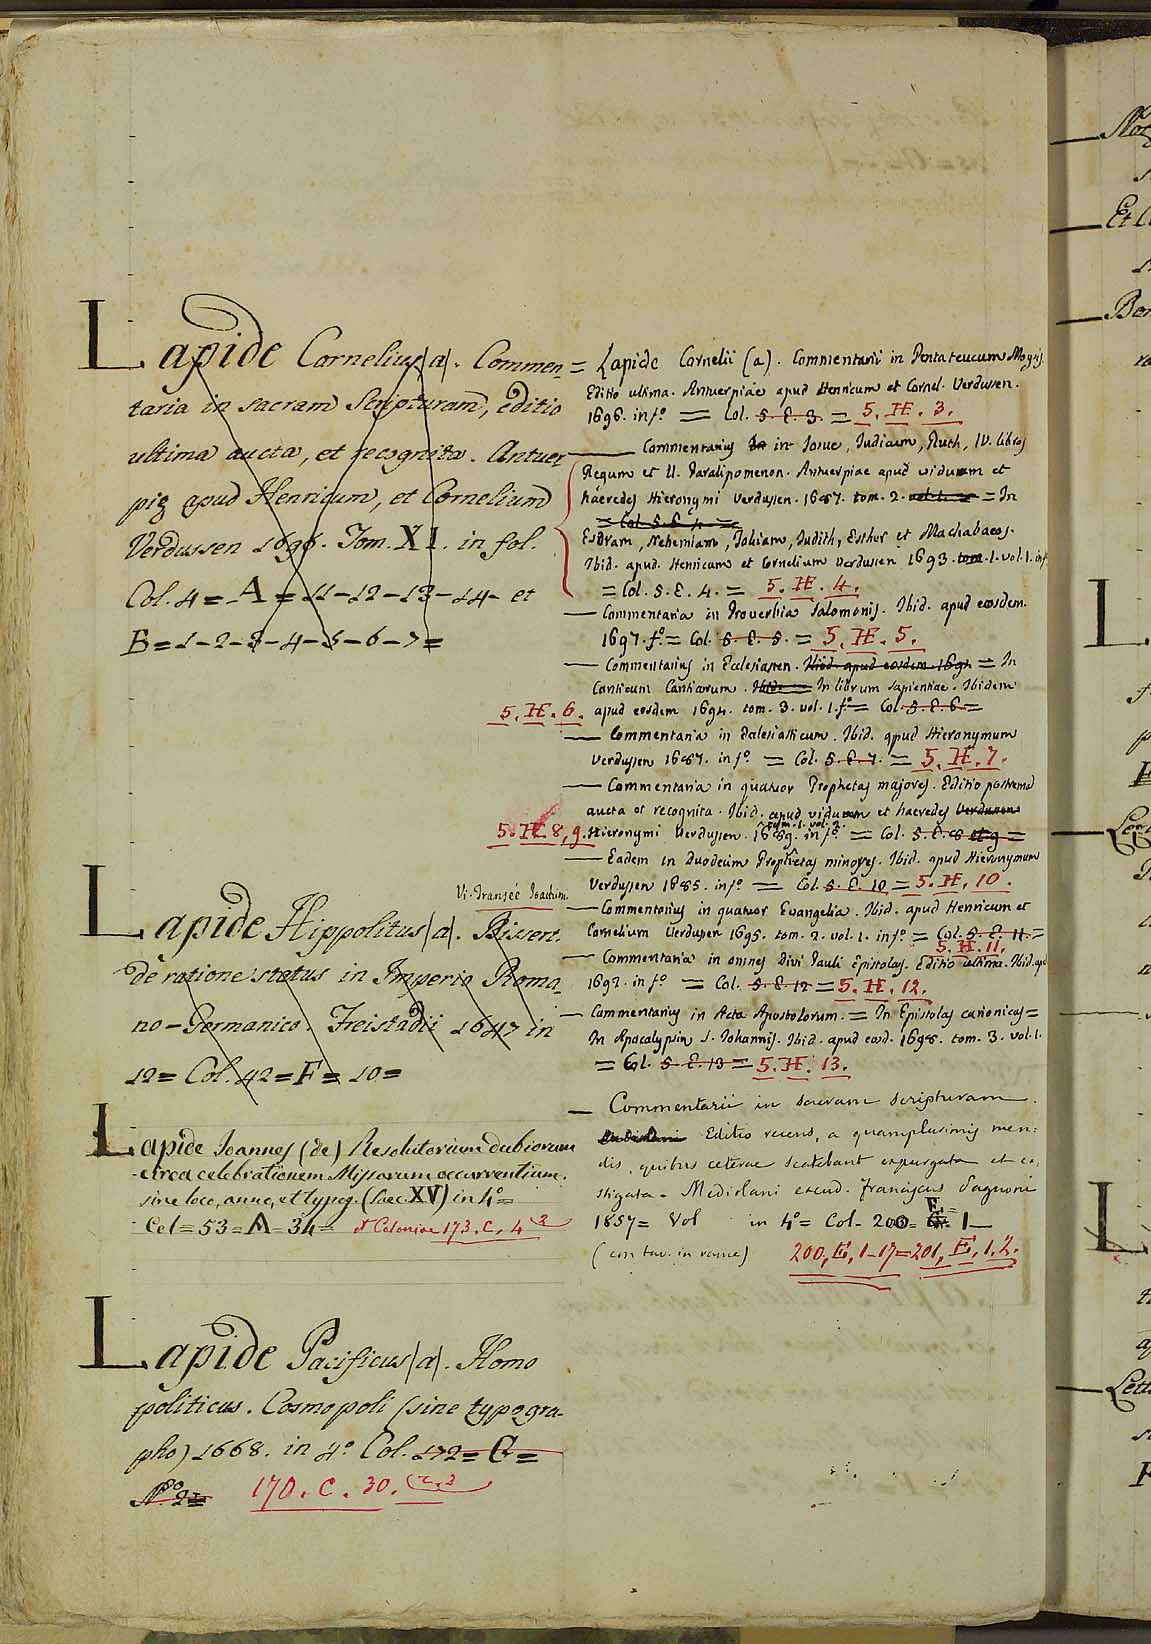 Lapide Cornelius (a). Commen-
taria in sacram Scripturam, editio
ultima aucta, et recognita. Antuer
pię apud Henricum, et Cornelium
Verdussen 1696. Tom. XI. in fol.
Col. 4 = A = 11-12-13-14- et
B = 1-2-3-4-5-6-7 =
Vi. Transeè Joachim.
Lapide Hippolitus (a). Dissert.
de ratione status in Imperio Roma-
no-Germanico. Freistadii 1647 in
12 = Col. 42 = F = 10 =
Lapide Joannes (de) Resolutorium dubiorum
circa celebrationem Missarum occurrentium.
sine loco, anno, et typog. (saec. XV) in 4º =
Col = 53 = A = 34 = et Coloniae 173. C. 4 2
Lapide Pacificus (a). Homo
politicus. Cosmopoli (sine typogra-
pho) 1668. in 4º Col. 172 = G =
Nº 2 = 170. C. 30. (2.3
= Lapide Cornelii (a). Commentarii in Pentateucum Moysis.
Editio ultima. Antuerpiae apud Henricum et Cornel. Verdussen.
1696. in fº = Col. 5. E. 3. = 5. H. 3.
— Commentarius in Josue, Judicum, Ruth, IV. libros
Regum et II. Paralipomenon. Antuerpiae apud viduam et
haeredes Hieronymi Verdussen. 1687. tom. 2. vol. 1. = In
= Col. 5. E. 4. =
Esdram, Nehemiam, Tobiam, Judith, Esther et Machabaeos.
Ibid. apud Henricum et Cornelium Verdussen 1693. tom. 1. vol. 1. in fº
= Col. 5. E. 4. = 5. H. 4.
— Commentaria in Proverbia Salomonis. Ibid. apud eosdem.
1697. fº = Col. 5. E. 5. = 5. H. 5.
— Commentarius in Ecclesiasten. Ibid. apud eosdem 1694 = In
Canticum Canticorum. Ibid. = In librum Sapientiae. Ibidem
5. H. 6. apud eosdem 1694. tom. 3. vol. 1. fº = Col. 5. E. 6 =
— Commentaria in Ecclesiasticum. Ibid. apud Hieronymum
Verdussen 1687. in fº = Col. 5. E. 7. = 5. H. 7.
— Commentaria in quatuor Prophetas majores. Editio postrema
aucta et recognita. Ibid. apud viduam et haeredes Verdussen
tom. 1. vol. 2.
5. H. 8, 9. Hieronymi Verdussen. 1689. in fº = Col. 5. E. 8 et 9 =
— Eadem in duodecim Prophetas minores. Ibid. apud Hieronymum
Verdussen 1685. in fº = Col. 5. E. 10 = 5. H. 10.
— Commentarius in quatuor Evangelia. Ibid. apud Henricum et
Cornelium Verdussen 1695. tom. 2. vol. 1. in fº = Col. 5. E. 11. =
5. H. 11.
— Commentaria in omnes divi Pauli Epistolas. Editio ultima. Ibid. apud
1692. in fº = Col. 5. E. 12 = 5. H. 12.
— Commentarius in Acta Apostolorum. = In Epistolas canonicas =
In Apocalypsin S. Johannis. Ibid. apud eosd. 1698. tom. 3. vol. 1.
= Col. 5. E. 13 = 5. H. 13.
— Commentarii in sacram scripturam.
Editio recens, a quamplurimis men:
dis, quibus ceterae scatebant expurgata et ca:
stigata. Mediolani excud. Franciscus Pagnoni
1857 = Vol in 4º = Col. 200 = E. = 1—
(con tav. in rame) 200, E, 1-17 = 201, E, 1.2.